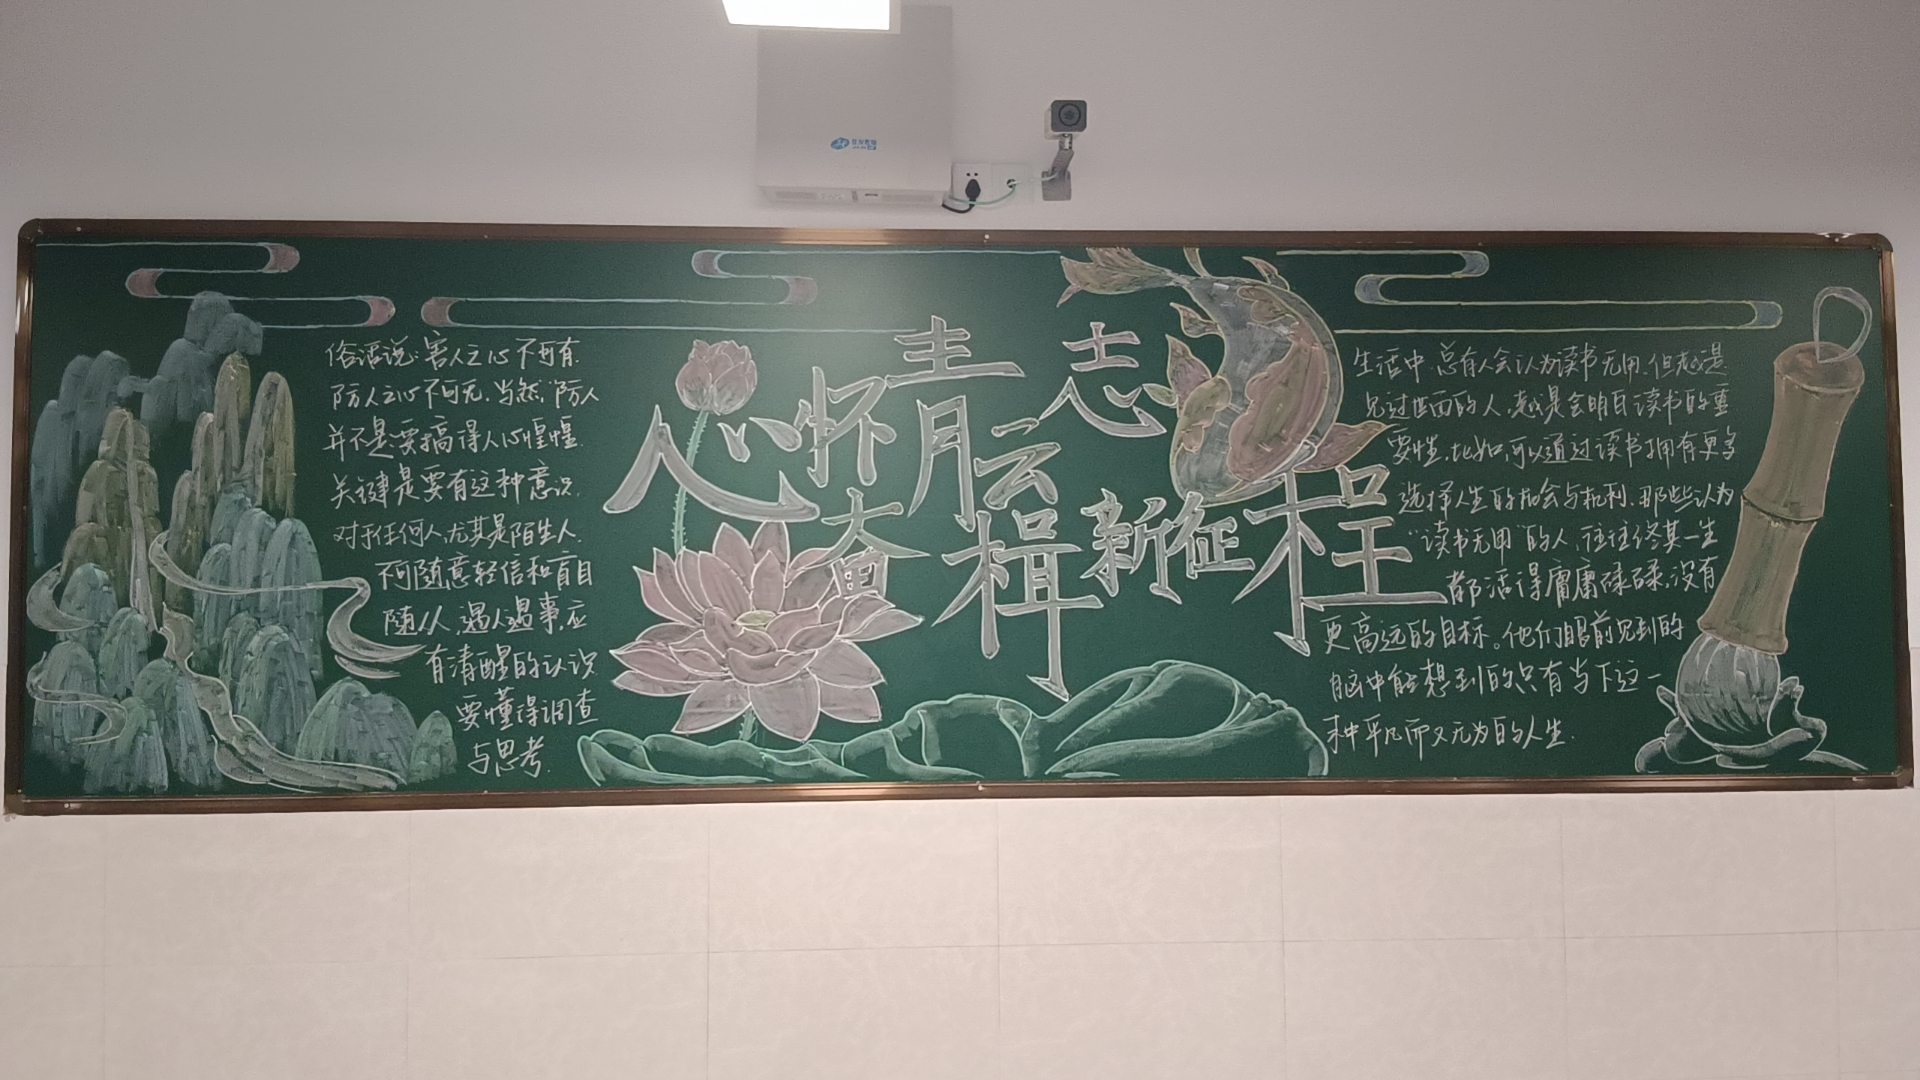 俗话说：害人之心不可有.
防人之心不可无.当然，"防人
并不是要搞得人心惶惶.
关键是要有这种意识.
对于任何人,尤其是陌生人.
不可随意轻信和盲目
随从,遇人遇事,应
有清醒的认识
要懂得调查
与思考.
心怀青云志
奋楫新征程
生活中.总有人会认为读书无用.但越是
见过世面的人,越是会明白读书的重
要性.比如,可以通过读书拥有更多
选择人生的机会与权利.那些认为
"读书无用"的人,往往终其一生
都活得庸庸碌碌.没有
更高远的目标。他们眼前见到的
脑中能想到的只有当下这一
种平凡而又无为的人生.